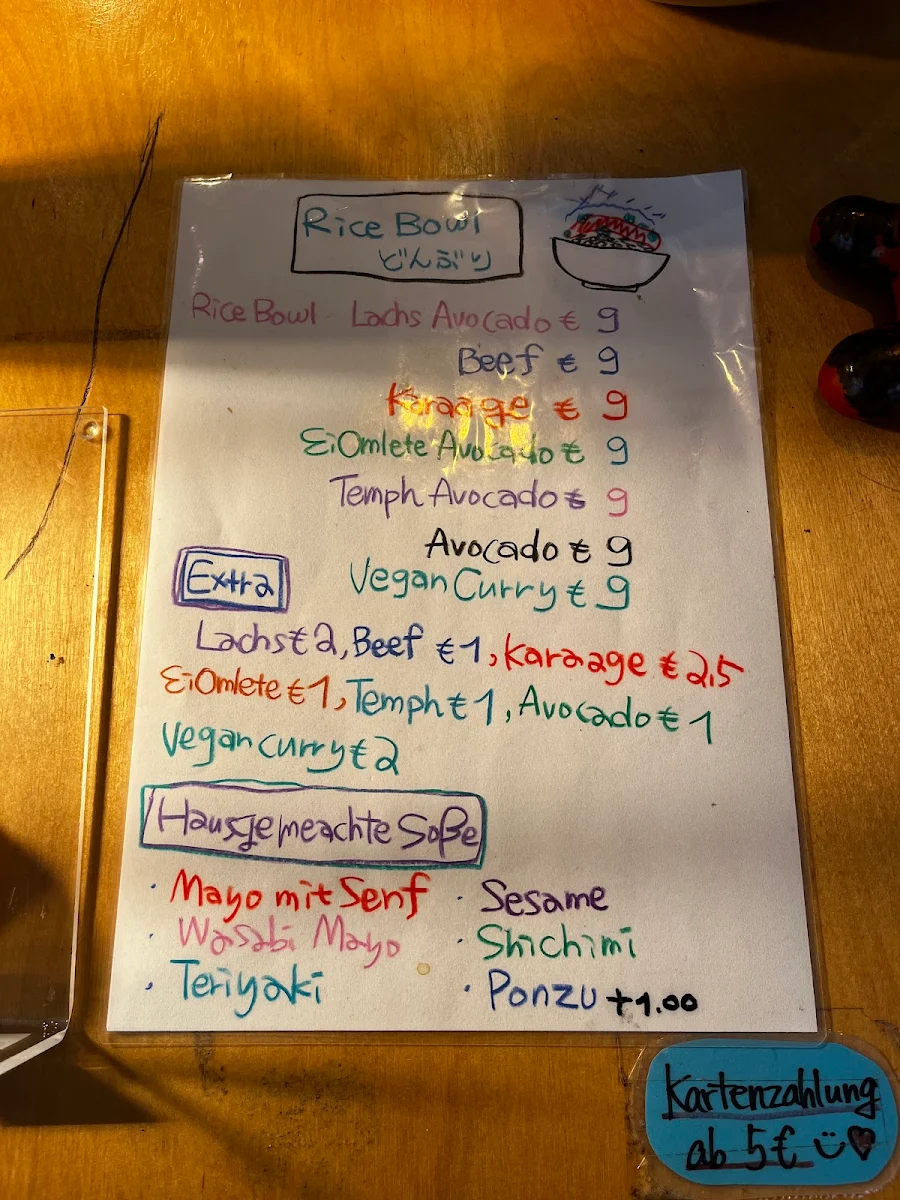 Rice Bowl
どんぶり
Rice Bowl Lachs Avocado € 9
Beef € 9
Karaage € 9
EiOmlete Avocado € 9
Temph Avocado € 9
Avocado € 9
Vegan Curry € 9
Extra
Lachs € 2, Beef € 1, Karaage € 2,5
EiOmlete € 1, Temph € 1, Avocado € 1
Vegan curry € 2
Hausgemeachte Soße
· Mayo mit Senf · Sesame
· Wasabi Mayo · Shichimi
· Teriyaki · Ponzu +1.00
Kartenzahlung
ab 5€